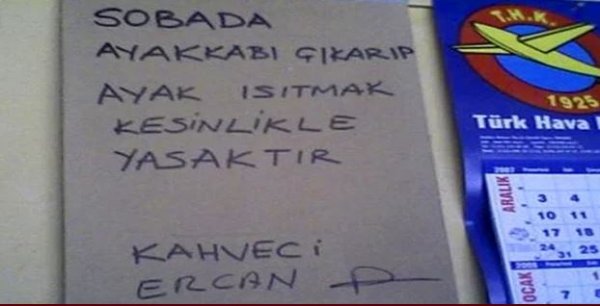 SOBADA
AYAKKABI ÇIKARIP
AYAK ISITMAK
KESİNLİKLE
YASAKTIR
KAHVECİ
ERCAN
T.H.K.
1925
Türk Hava
2007
ARALIK
3 4
10 11
17 18
24 31 25
2008
OCAK
1
7 8